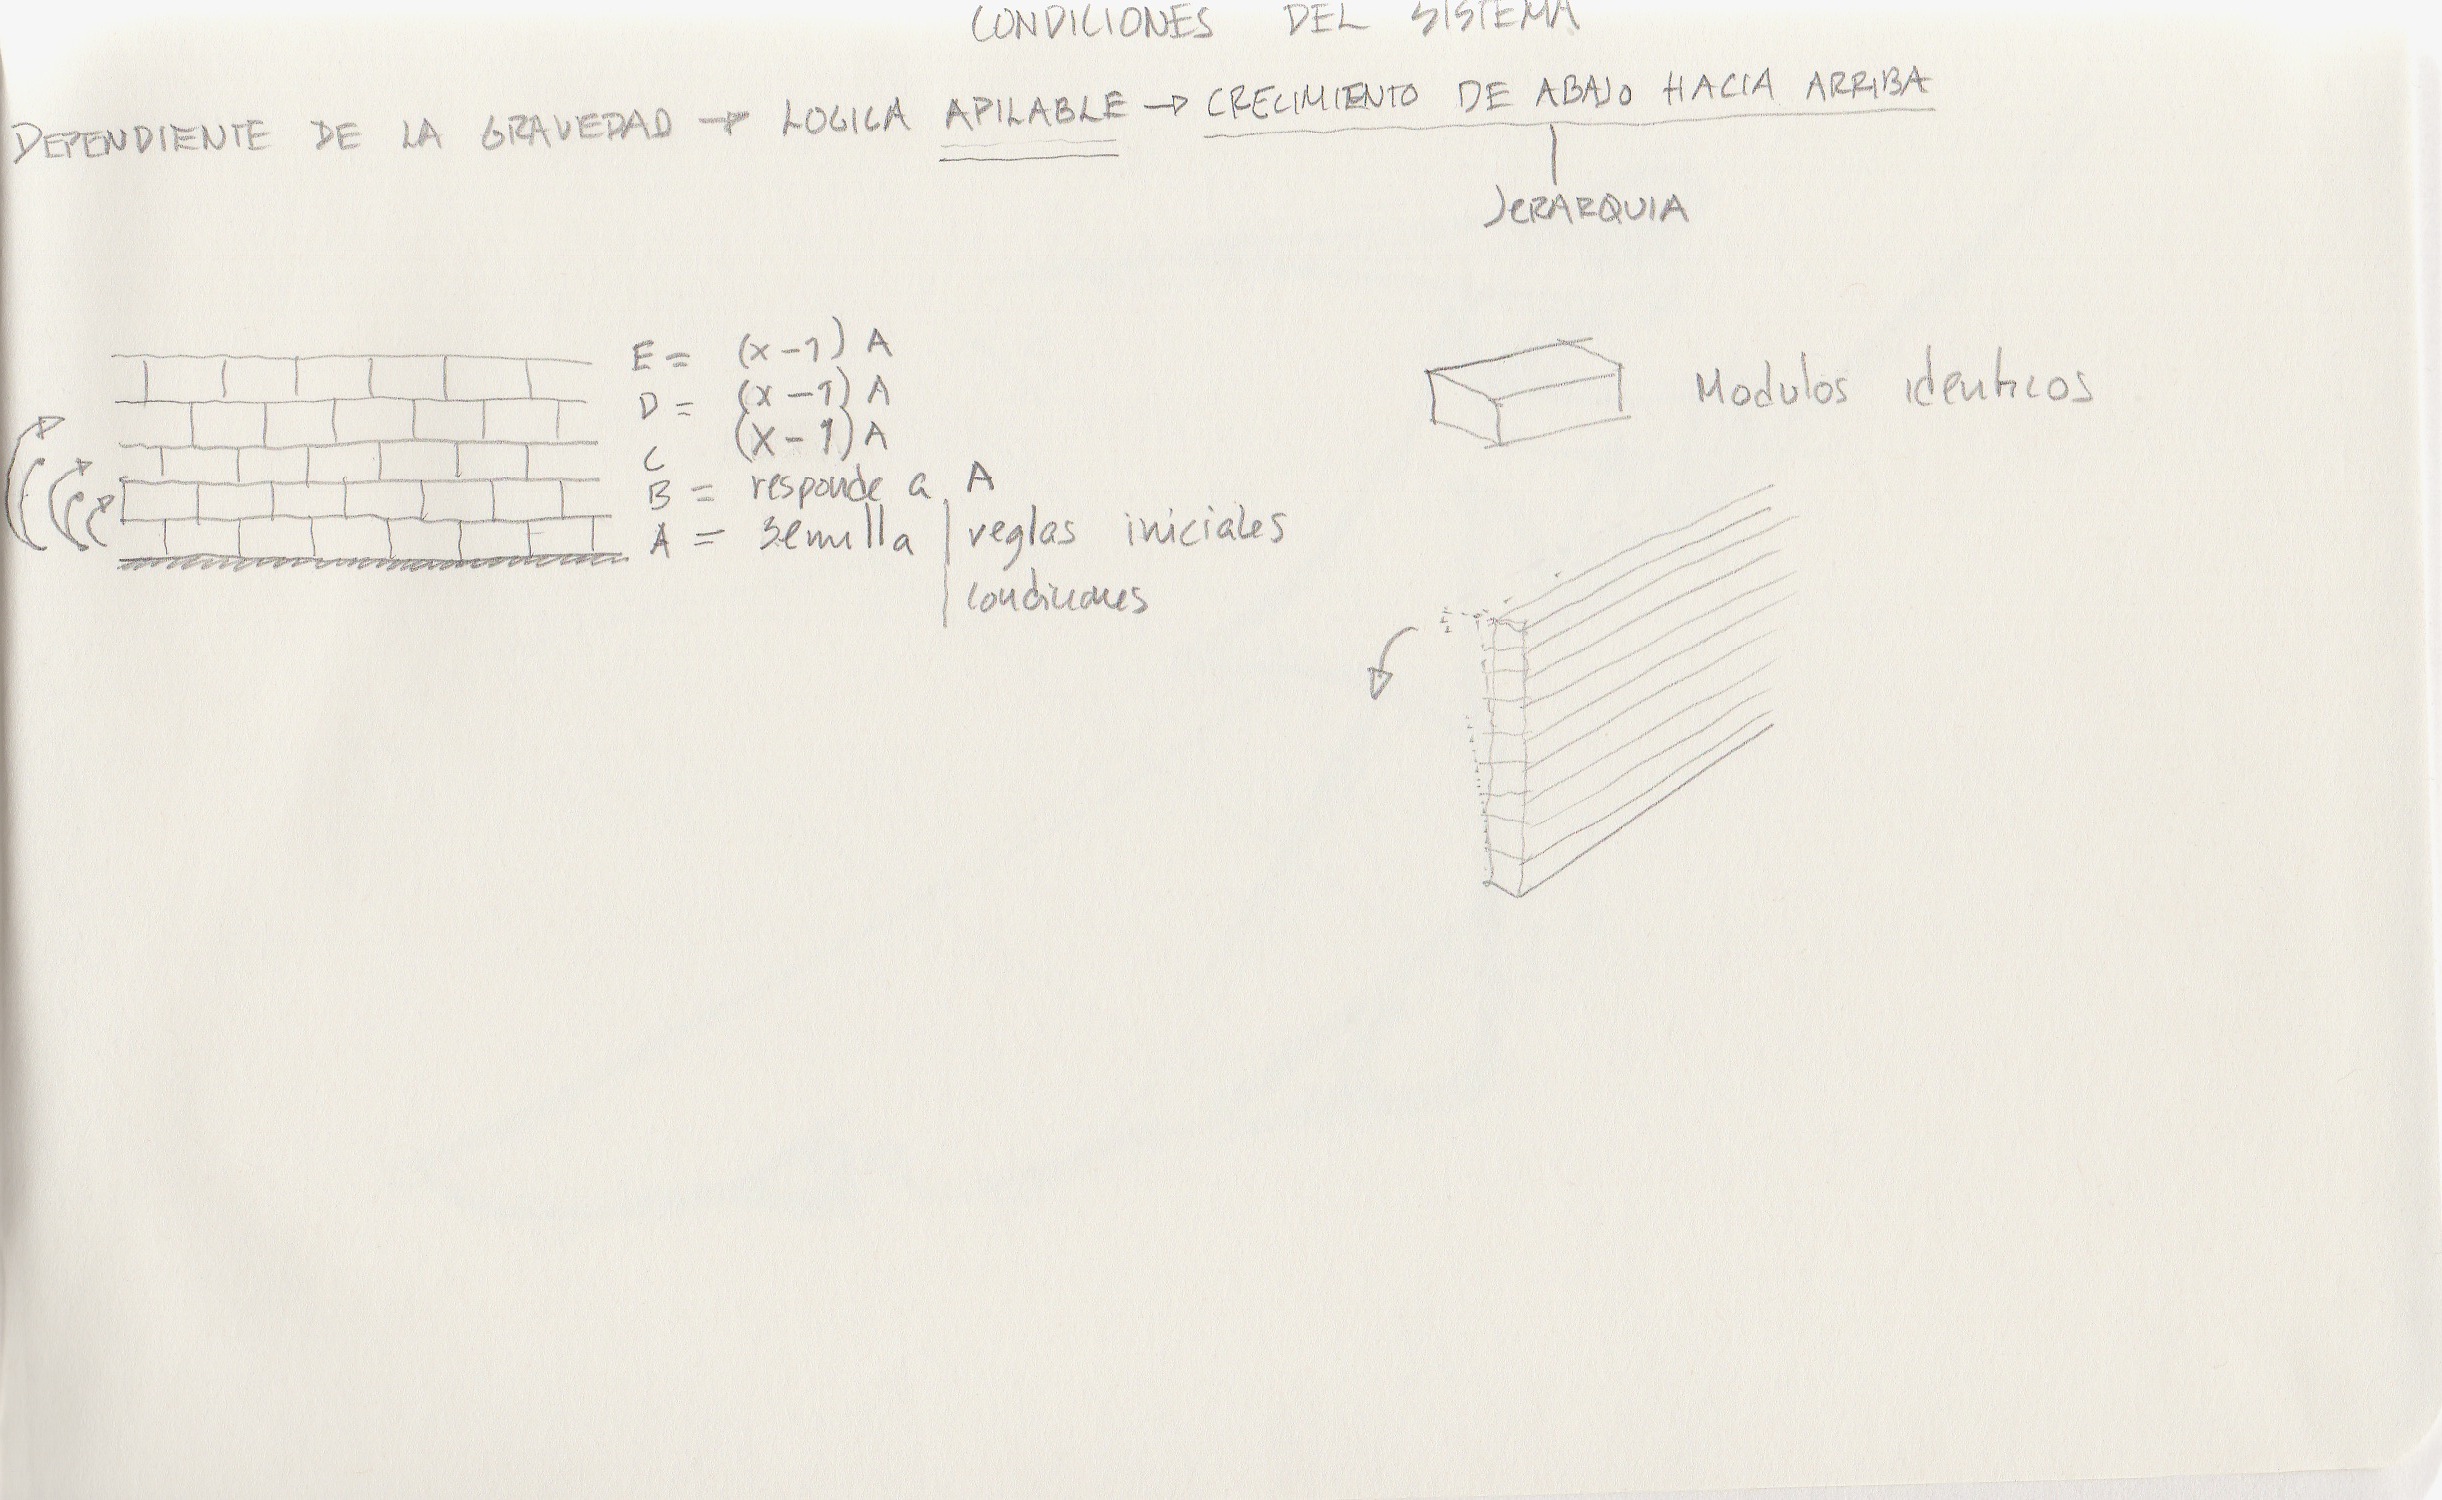 CONDICIONES DEL SISTEMA
DEPENDIENTE DE LA GRAVEDAD → LOGICA APILABLE → CRECIMIENTO DE ABAJO HACIA ARRIBA
JERARQUIA
E = (x-1) A
D = (x-1) A
C (x-1) A
B = responde a A
A = semilla | reglas iniciales
condiciones
Modulos identicos